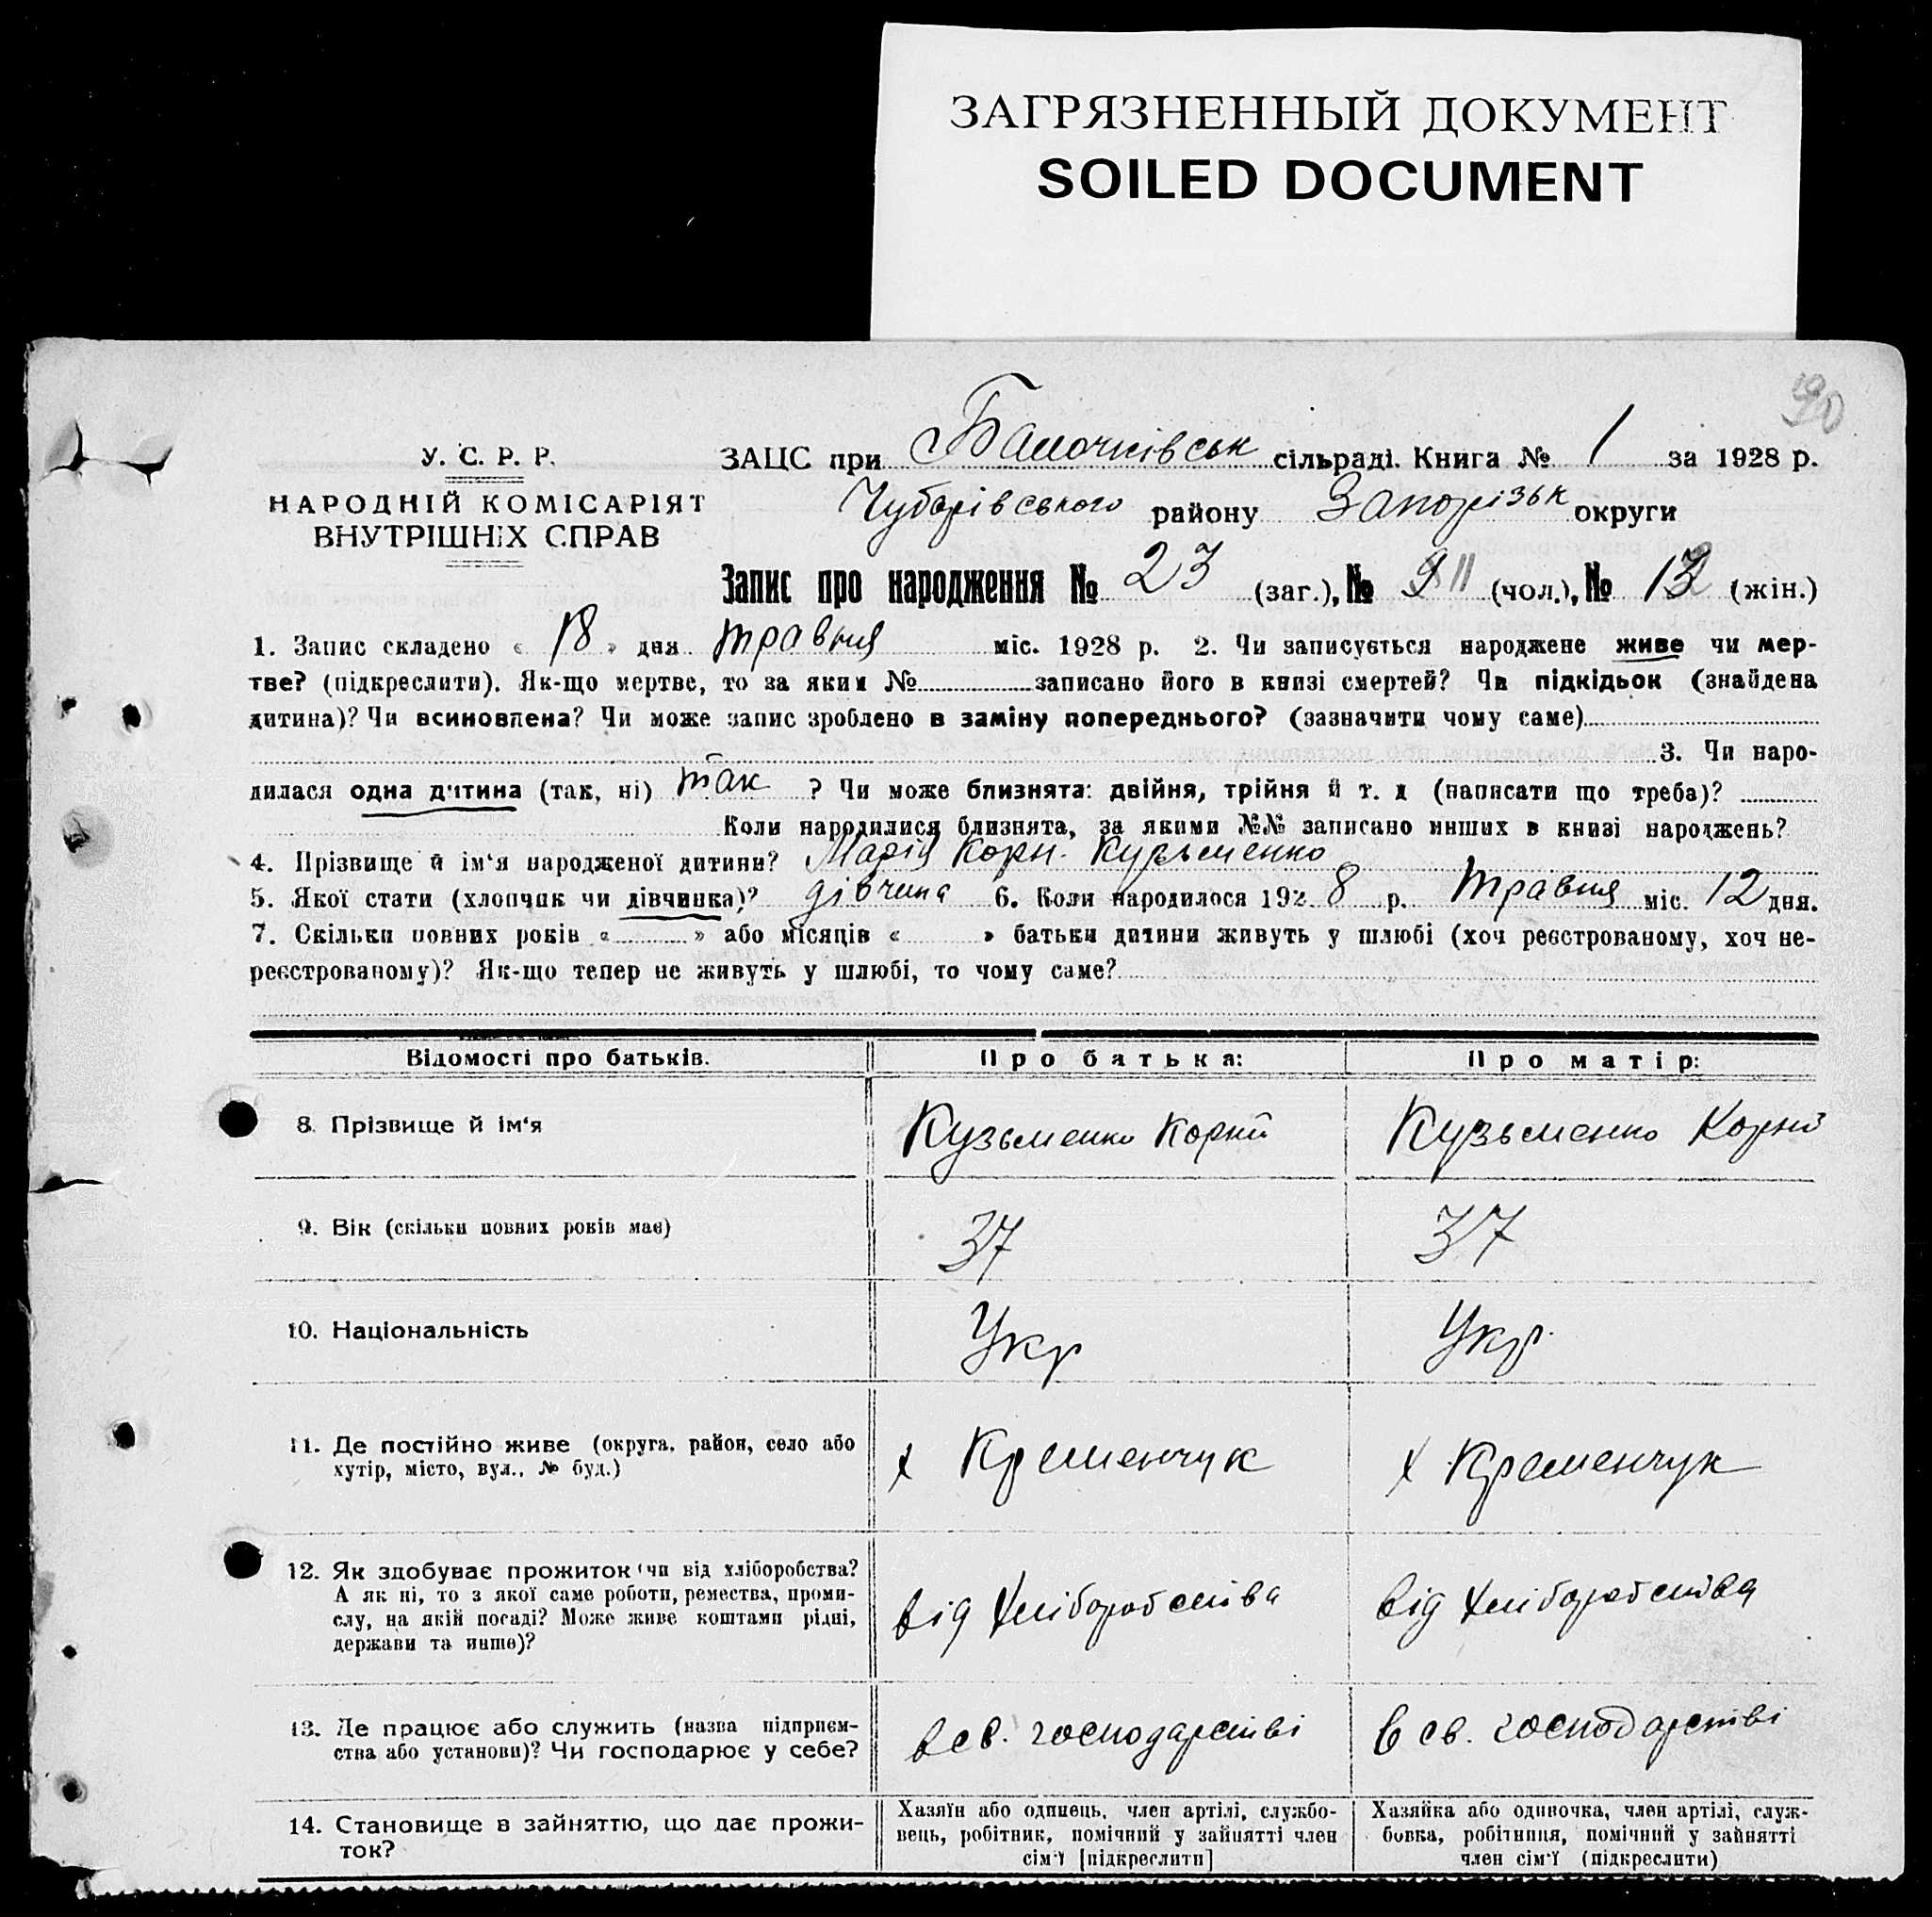 ЗАГРЯЗНЕННЫЙ ДОКУМЕНТ
SOILED DOCUMENT
90
У. С. Р. Р.
НАРОДНІЙ КОМІСАРІЯТ
ВНУТРІШНІХ СПРАВ
ЗАЦС при Балочківськ сільраді. Книга № 1 за 1928 р.
Чубарівського району Запорізьк округи
Запис про народження № 23 (заг.), № 11 (чол.), № 12 (жін.)
1. Запис складено « 18 » дня травня міс. 1928 р. 2. Чи записується народжене живе чи мер-
тве? (підкреслити). Як-що мертве, то за яким № записано його в книзі смертей? Чи підкідьок (знайдена
дитина)? Чи всиновлена? Чи може запис зроблено в заміну попереднього? (зазначити чому саме)
3. Чи наро-
дилася одна дитина (так, ні) так ? Чи може близнята: двійня, трійня й т. д (написати що треба)?
Коли народилися близнята, за якими №№ записано инших в книзі народжень?
4. Прізвище й ім'я народженої дитини? Марія Корн. Кузьменко
5. Якої стати (хлопчик чи дівчинка)? дівчина 6. Коли народилося 192 8 р. травня міс. 12 дня.
7. Скільки повних років « » або місяців « » батьки дитини живуть у шлюбі (хоч реєстрованому, хоч не-
реєстрованому)? Як-що тепер не живуть у шлюбі, то чому саме?
Відомості про батьків. Про батька: Про матір:
8. Прізвище й ім'я Кузьменко Корній Кузьменко Корній
9. Вік (скільки повних років має) 37 37
10. Національність Укр Укр.
11. Де постійно живе (округа, район, село або
хутір, місто, вул., № буд.) х Кременчук х Кременчук
12. Як здобуває прожиток (чи від хліборобства?
А як ні, то з якої саме роботи, ремества, проми-
слу, на якій посаді? Може живе коштами рідні,
держави та инше)? від хліборобства від хліборобства
13. Де працює або служить (назва підприєм-
ства або установи)? Чи господарює у себе? в св. господарстві в св. господарстві
14. Становище в зайняттю, що дає прожи-
ток?
Хазяїн або одинець, член артілі, службо-
вець, робітник, помічний у зайнятті член
сім'ї [підкреслити]
Хазяйка або одиночка, член артілі, служ-
бовка, робітниця, помічний у зайнятті
член сім'ї (підкреслити)